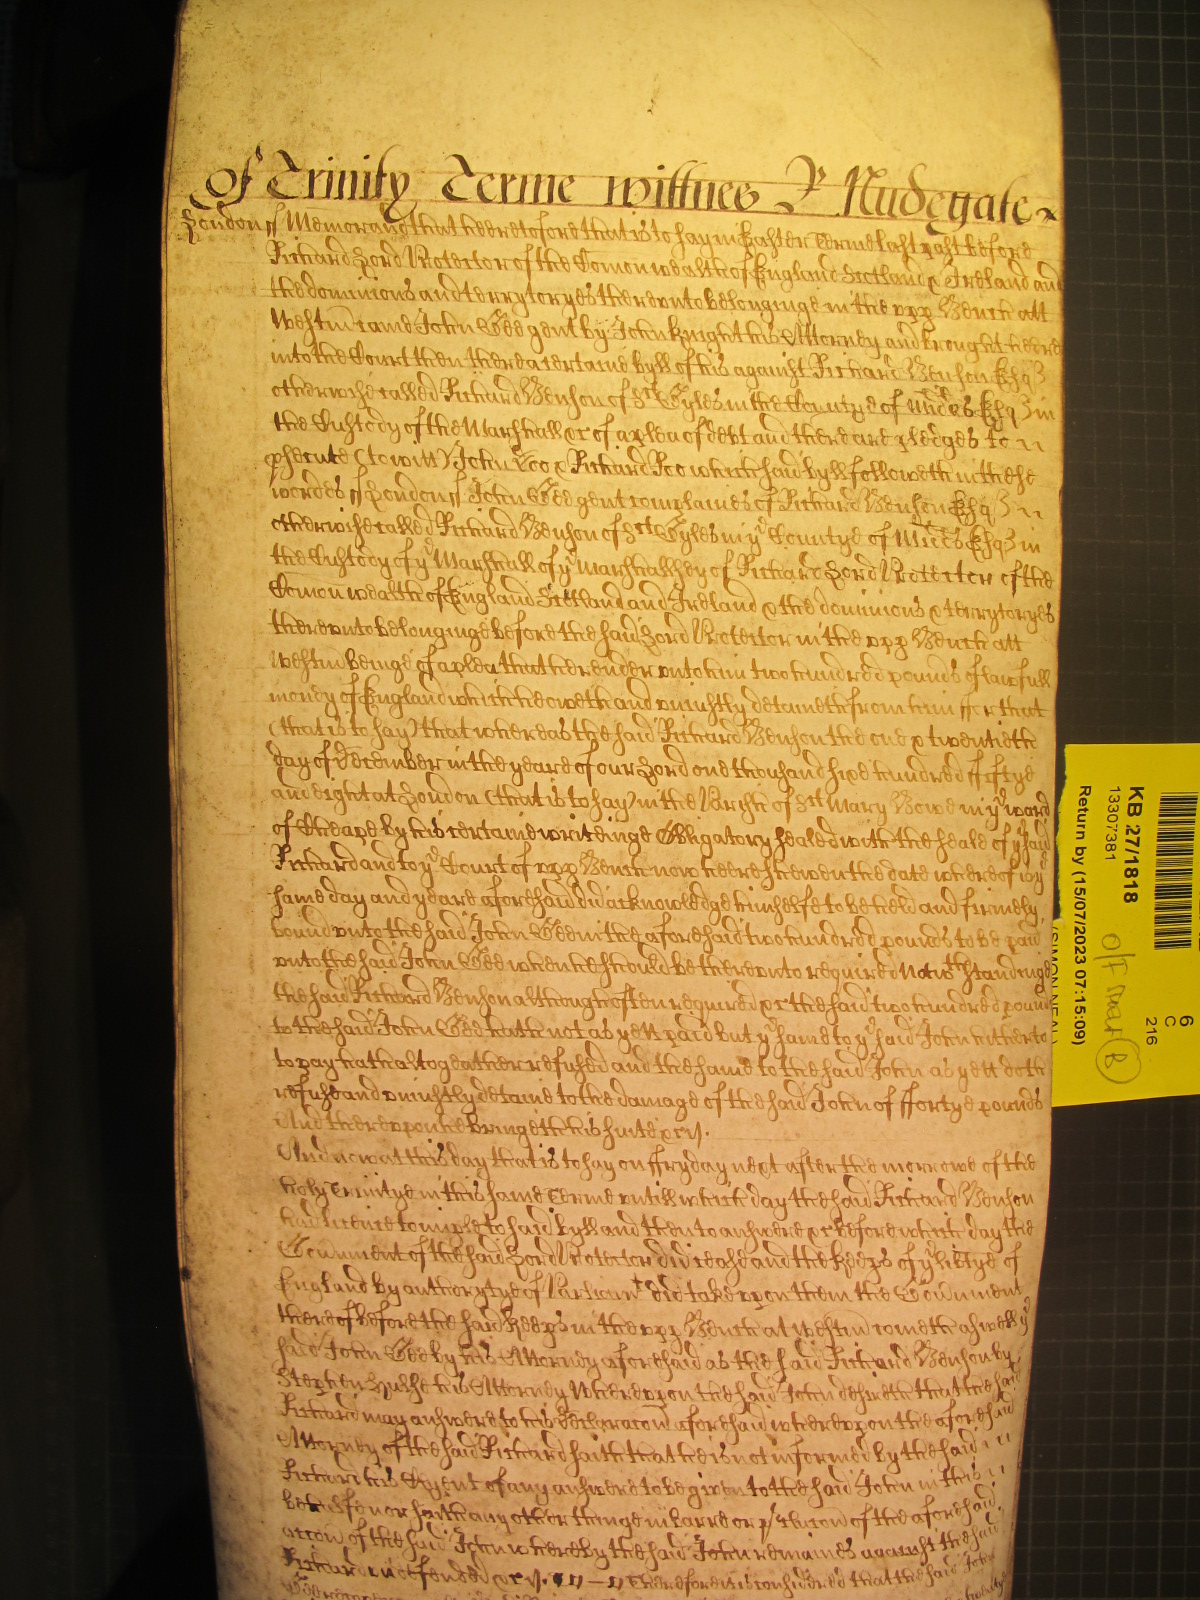 Of Trinity Terme wittnes P Nudegate
London ss Memorand that heeretofore that is to say in Easter Terme last past before
Richard Lord Protector of the Comonwealth of England Scotland & Ireland and
the dominions and terrytoryes thereunto belonginge in the upp Bench att
Westm came John Gee gent by John Knight his Attorney and brought heere
into the Court then there a certaine byll of his against Richard Benson Esqr
otherwise called Richard Benson of St Gyles in the Countye of Midds Esqr in
the Custody of the Marshall &c of a plea of debt and there are pledges to
psecute (to witt) John Doo & Richard Roo which said byll followeth in these
wordes ss London ss John Gee gent complaines of Richard Benson Esqr
otherwise called Richard Benson of St Gyles in ye Countye of Midds Esqr in
the Custody of ye Marshall of ye Marshallsey of Richard Lord Protector of the
Comonwealth of England Scotland and Ireland & the dominions & terrytoryes
thereunto belonginge before the said Lord Protector in the upp Bench att
Westm beinge of a plea that he render unto him two hundred pounds of lawfull
money of England which he oweth and uniustly detaineth from him ffor that
(that is to say) that whereas the said Richard Benson the one & twentieth
day of December in the yeare of our Lord one thousand sixe hundred fiftye
and eight at London (that is to say) in the Parish of St Mary Bowe in ye ward
of Cheape by his certaine writeinge Obligatory sealed with the seale of ye said
Richard and to ye Court of upp Bench now heere shewen the date whereof is ye
same day and yeare aforesaid did acknowledge himselfe to be held and firmely
bound unto the said John Gee in the aforesaid two hundred pounds to be paid
unto the said John Gee when he should be thereunto required Notwthstandinge
the said Richard Benson although often required &c the said two hundred pounds
to the said John Gee hath not as yett paid but ye same to ye said John hitherto
to pay hath altogeather refused and the same to the said John as yett doth
refuse and uniustly detaine to the damage of the said John of ffortye pounds
And thereupon he bringeth his suite &c
And now at this day that is to say on ffryday next after the morrowe of the
holy Trinitye in this same Terme untill which day the said Richard Benson
had licence to imple to said byll and then to answere &c before which day the
Govrnment of the said Lord Protector did cease and the Keeps of ye libtye of
England by authorytye of Parliamt did take upon them the Govrnment
thereof before the said Keeps in the upp Bench at Westm cometh aswell ye
said John Gee by his Attorney aforesaid as the said Richard Benson by
Stephen Hulse his Attorney Whereupon the said John desireth that the said
Richard may answere to his declaracon aforesaid whereupon the aforesaid
Attorney of the said Richard saith that he is not informed by the said
Richard his Clyent of any answere to be given to the said John in this
behalfe nor saith any other thinge in barre or pclusion of the aforesaid
accon of the said John whereby the said John remaines against the said
Richard undefended &c Therefore it is considered that the said John
KB 27/1818
13307381
Return by (15/07/2023 07:15:09)
(SIMON NEAL)
6
C
216